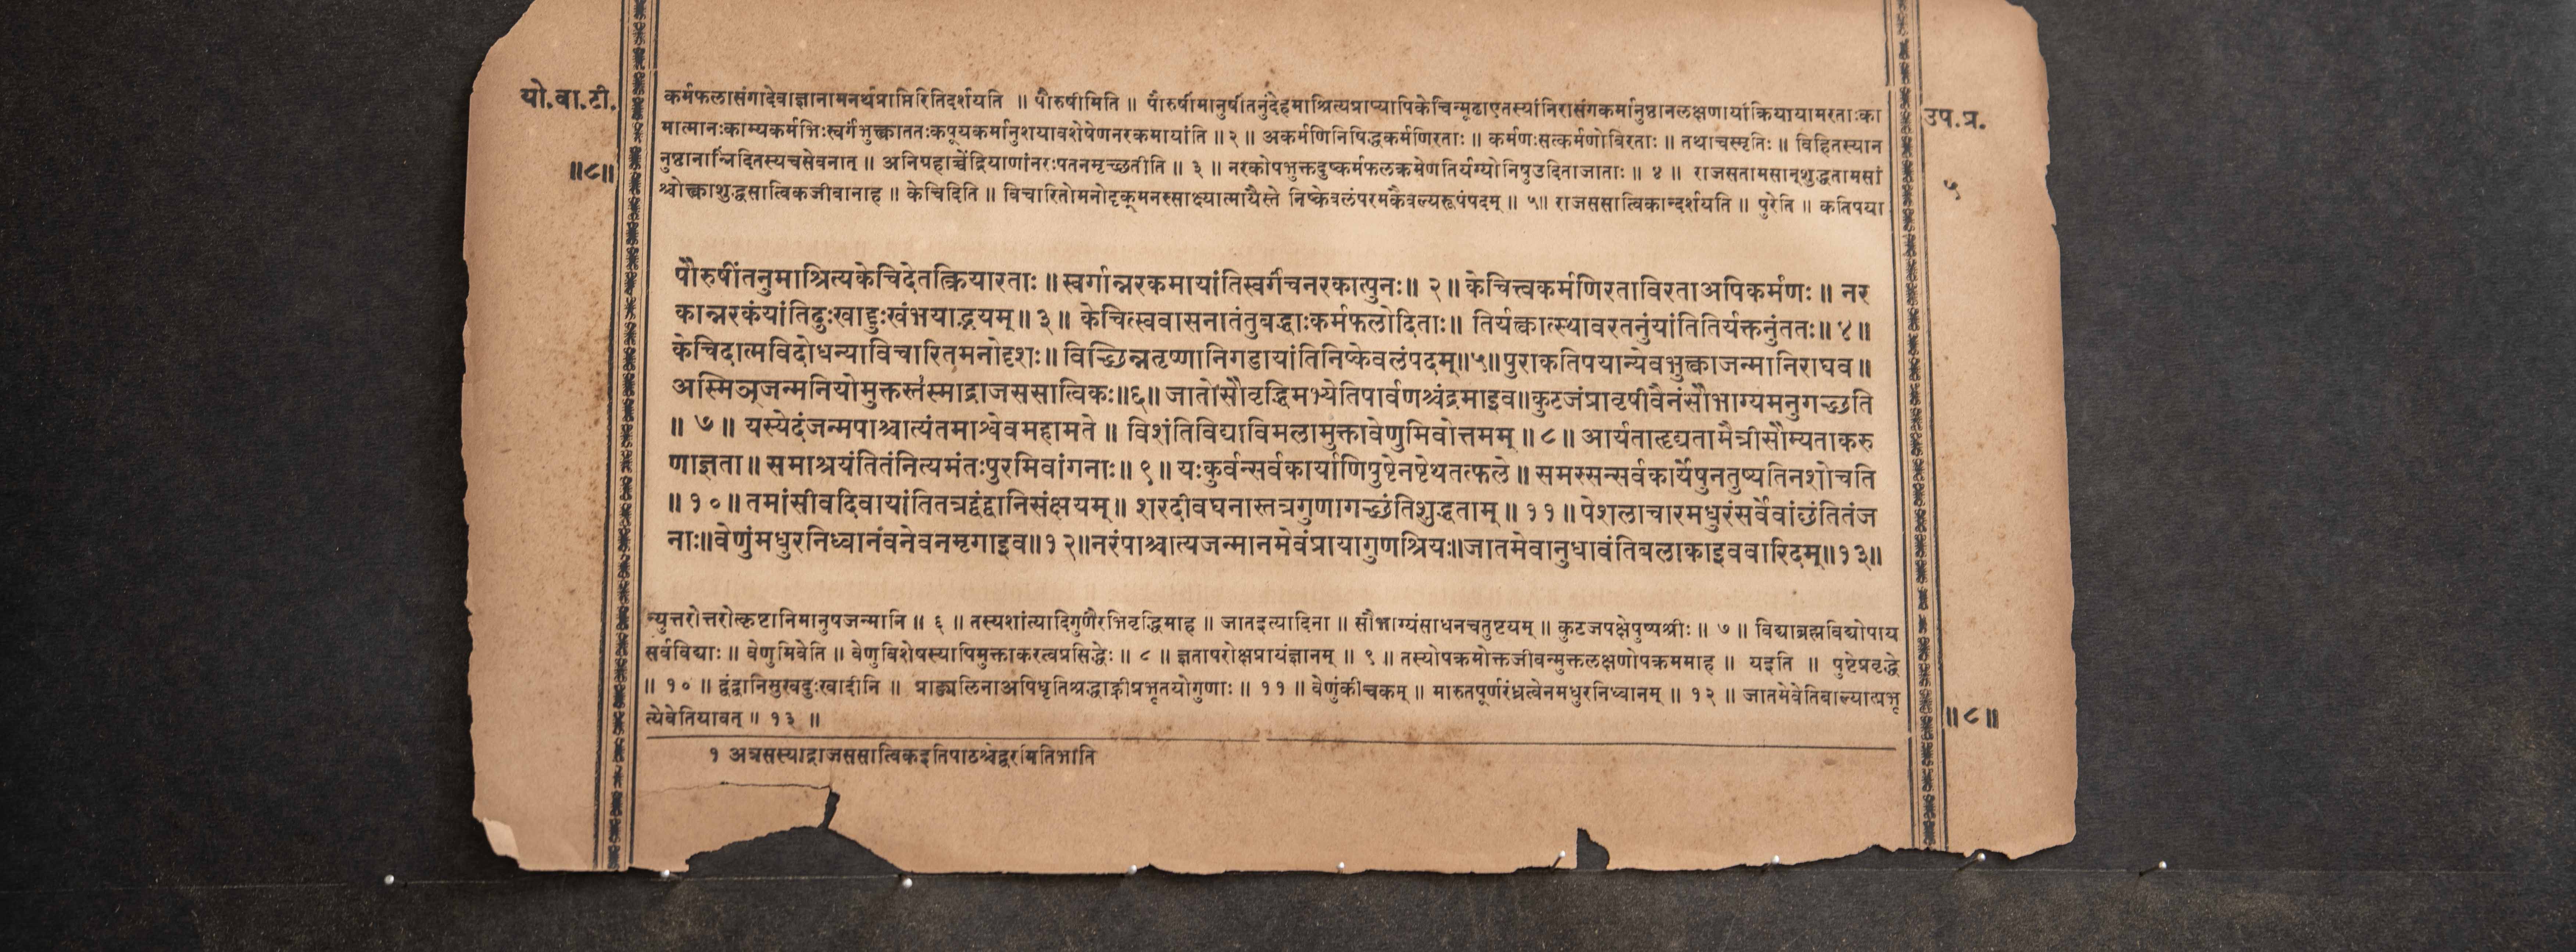 यो.वा.टी.
॥८॥
कर्मफलासंगादेवाज्ञानामनर्थप्राप्तिरितिदर्शयति ॥ पौरुषीमिति ॥ पौरुषींमानुषींतनुंदेहमाश्रित्यप्राप्यापिकेचिन्मूढाएतस्यांनिरासंगकर्मानुष्ठानलक्षणायांक्रियायामरताःका
मात्मानःकाम्यकर्मभिःस्वर्गंभुक्त्वाततःकपूयकर्मानुशयावशेषेणनरकमायांति ॥ २ ॥ अकर्मणिनिषिद्धकर्मणिरताः ॥ कर्मणःसत्कर्मणोविरताः ॥ तथाचस्मृतिः ॥ विहितस्यान
नुष्ठानान्निंदितस्यचसेवनात् ॥ अनिग्रहाच्चेंद्रियाणांनरःपतनमृच्छतीति ॥ ३ ॥ नरकोपभुक्तदुष्कर्मफलक्रमेणतिर्यग्योनिषुउदिताजाताः ॥ ४ ॥ राजसतामसान्शुद्धतामसां
श्चोक्त्वाशुद्धसात्विकजीवानाह ॥ केचिदिति ॥ विचारितोमनोदृक्मनस्साक्ष्यात्मायैस्ते निष्केवलंपरमकैवल्यरूपंपदम् ॥ ५॥ राजससात्विकान्दर्शयति ॥ पुरेति ॥ कतिपया
उप.प्र.
५
पौरुषींतनुमाश्रित्यकेचिदेतत्क्रियारताः ॥ स्वर्गान्नरकमायांतिस्वर्गंचनरकात्पुनः॥ २ ॥ केचित्त्वकर्मणिरताविरताअपिकर्मणः ॥ नर
कान्नरकंयांतिदुःखाद्दुःखंभयाद्भयम् ॥ ३ ॥ केचित्स्ववासनातंतुबद्धाःकर्मफलोदिताः॥ तिर्यक्त्वात्स्थावरतनुंयांतितिर्यक्तनुंततः॥ ४ ॥
केचिदात्मविदोधन्याविचारितमनोदृशः॥ विच्छिन्नतृष्णानिगडायांतिनिष्केवलंपदम्॥५॥ पुराकतिपयान्येवभुक्त्वाजन्मानिराघव ॥
अस्मिञ्जन्मनियोमुक्तस्तस्माद्राजससात्विकः॥६॥ जातोसौवृद्धिमभ्येतिपार्वणश्चंद्रमाइव॥कुटजंप्रावृषीवैनंसौभाग्यमनुगच्छति
॥ ७ ॥ यस्येदंजन्मपाश्चात्यंतमाश्वेवमहामते ॥ विशंतिविद्याविमलामुक्तावेणुमिवोत्तमम् ॥ ८ ॥ आर्यताहृद्यतामैत्रीसौम्यताकरु
णाज्ञता ॥ समाश्रयंतितंनित्यमंतःपुरमिवांगनाः॥ ९ ॥ यःकुर्वन्सर्वकार्याणिपुष्टेनष्टेथतत्फले ॥ समस्सन्सर्वकार्येषुनतुष्यतिनशोचति
॥ १० ॥ तमांसीवदिवायांतितत्रद्वंद्वानिसंक्षयम् ॥ शरदीवघनास्तत्रगुणागच्छंतिशुद्धताम् ॥ ११ ॥ पेशलाचारमधुरंसर्वेवांछंतितंज
नाः॥वेणुंमधुरनिध्वानंवनेवनमृगाइव॥१२॥नरंपाश्चात्यजन्मानमेवंप्रायागुणश्रियः॥जातमेवानुधावंतिबलाकाइववारिदम्॥१३॥
न्युत्तरोत्तरोत्कृष्टानिमानुषजन्मानि ॥ ६ ॥ तस्यशांत्यादिगुणैरभिवृद्धिमाह ॥ जातइत्यादिना ॥ सौभाग्यंसाधनचतुष्टयम् ॥ कुटजपक्षेपुष्पश्रीः ॥ ७ ॥ विद्याब्रह्मविद्योपाय
सर्वविद्याः ॥ वेणुमिवेति ॥ वेणुविशेषस्यापिमुक्ताकरत्वप्रसिद्धेः ॥ ८ ॥ ज्ञतापरोक्षप्रायंज्ञानम् ॥ ९ ॥ तस्योपक्रमोक्तजीवन्मुक्तलक्षणोपक्रममाह ॥ यइति ॥ पुष्टेप्रवृद्धे
॥ १० ॥ द्वंद्वानिसुखदुःखादीनि ॥ प्राङ्मलिनाअपिधृतिश्रद्धाह्रीप्रभृतयोगुणाः ॥ ११ ॥ वेणुंकीचकम् ॥ मारुतपूर्णरंध्रत्वेनमधुरनिध्वानम् ॥ १२ ॥ जातमेवेतिबाल्यात्प्रभृ
त्येवेतियावत् ॥ १३ ॥
॥८॥
१ अत्रसस्याद्राजससात्विकइतिपाठश्चेद्वरमितिभाति